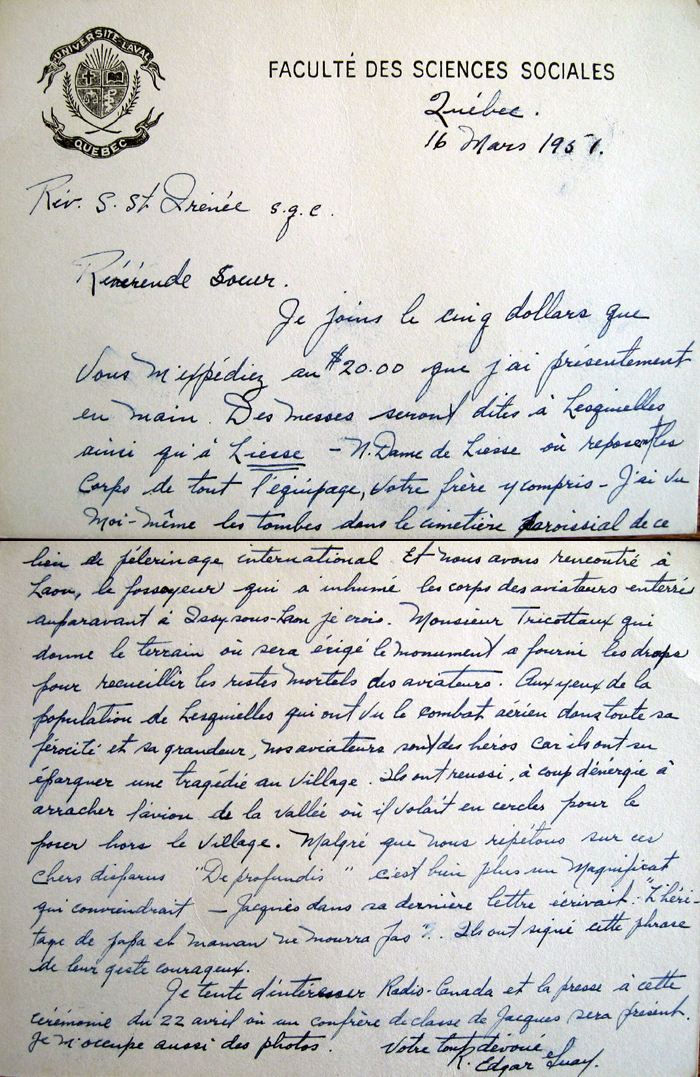 UNIVERSITÉ-LAVAL
QUEBEC
FACULTÉ DES SCIENCES SOCIALES
Québec.
16 Mars 1951.
Rév. S. St Irénée s.g.c.
Révérende Soeur.
Je joins le cinq dollars que
Vous m'expédiez au $20.00 que j'ai présentement
en main. Des messes seront dites à Lesquielles
ainsi qu'à Liesse - N. Dame de Liesse où reposent les
Corps de tout l'équipage, votre frère y compris - J'ai vu
Moi-même les tombes dans le cimetière paroissial de ce
lieu de pélerinage international. Et nous avons rencontré à
Laon, le fossoyeur qui a inhumé les corps des aviateurs enterré
auparavant à Issy-sous-Laon je crois. Monsieur Tricottaux qui
donne le terrain où sera érigé le monument a fourni les draps
pour recueillir les restes mortels des aviateurs. Aux yeux de la
population de Lesquielles qui ont vu le combat aérien dans toute sa
férocité et sa grandeur, nos aviateurs sont des héros car ils ont su
épargner une tragédie au village. Ils ont reussi, à coup d'énergie à
arracher l'avion de la vallée où il volait en cercles pour le
poser hors le village. Malgré que nous repétons sur ces
chers disparus "De profundis" c'est bien plus un Magnificat
qui conviendrait - Jacques dans sa dernière lettre écrivait: "L'héri-
tage de papa et maman ne mourra pas". Ils ont signé cette phrase
de leur geste courageux.
Je tente d'intéresser Radio-Canada et la presse à cette
cérémonie du 22 avril où un confrère de classe de Jacques sera présent.
Je m'occupe aussi des photos. Votre tout dévoué
R. Edgar